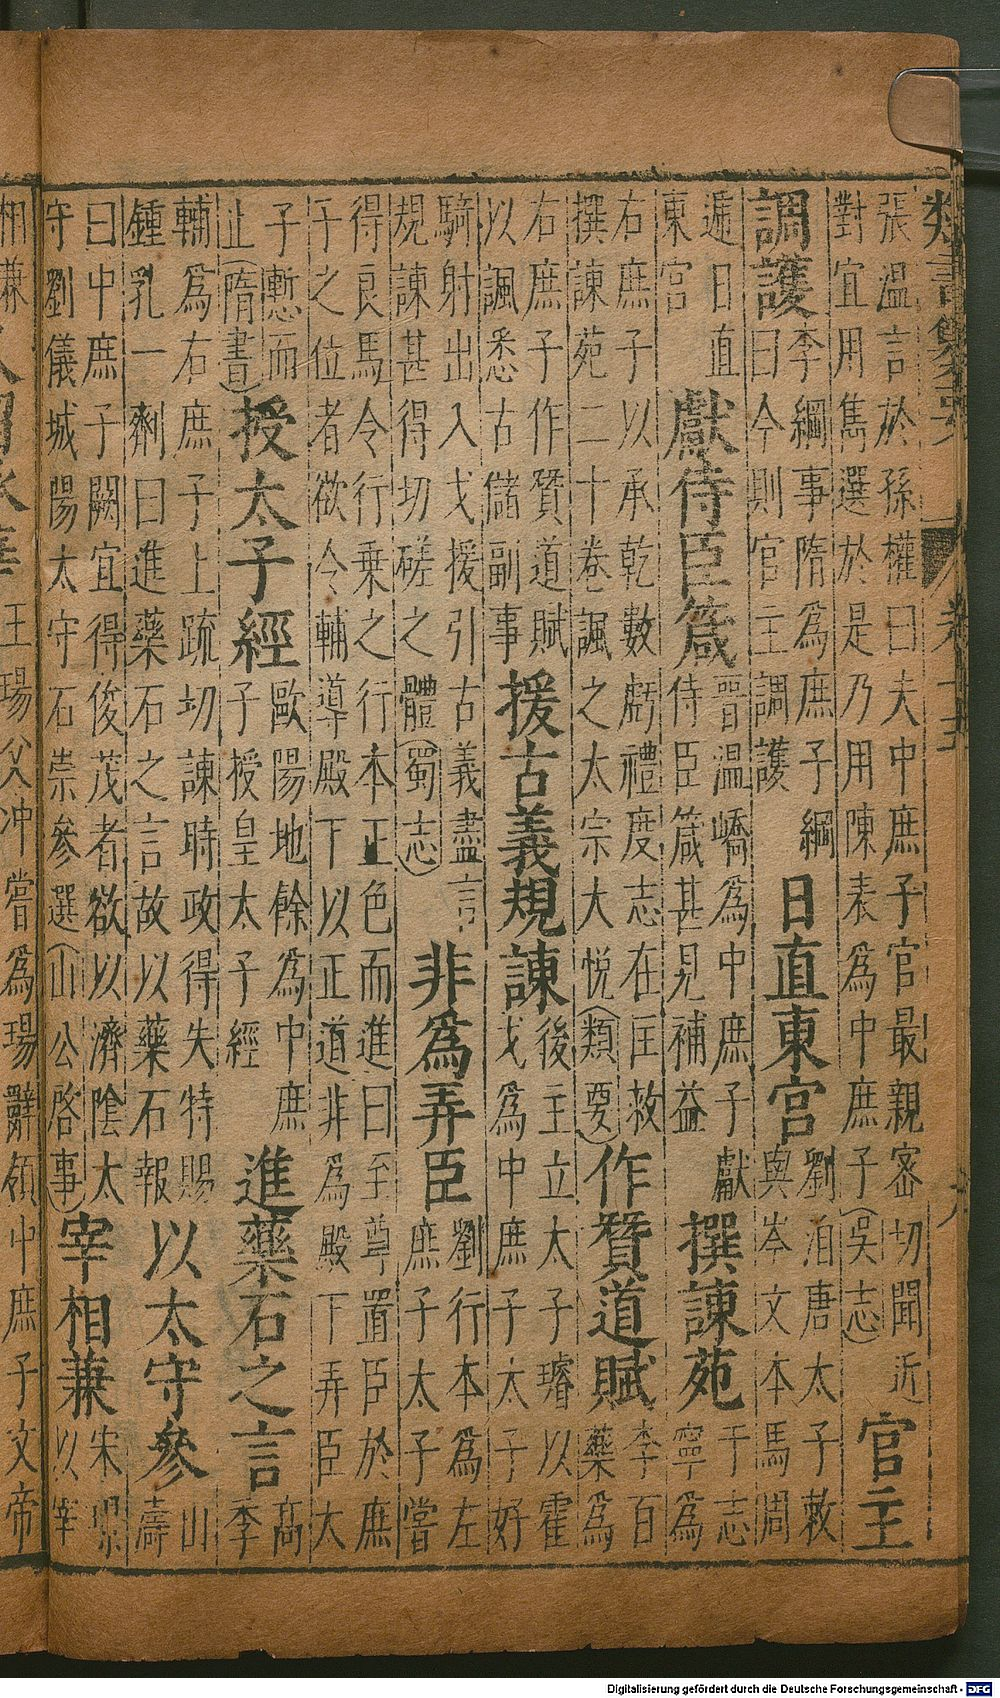 類書纂要
張溫言於孫權曰夫中庶子官最親密切聞近
對宜用雋選於是乃用陳表為中庶子(吳志)
官主
調護
李綱事隋為庶子綱
曰今則官主調護
日直東宮
劉洎唐太子敕
與岑文本馬周
遞日直
東宮
獻侍臣箴
晉溫嶠為中庶子獻
侍臣箴甚見補益
撰諫苑
于志
寧為
右庶子以承乾數虧禮度志在匡救
撰諫苑二十卷諷之太宗大悅(類要)
作贊道賦
李百
藥為
右庶子作贊道賦
以諷悉古儲副事
援古義規諫
後主立太子璿以霍
弋為中庶子太子好
騎射出入弋援引古義盡言
規諫甚得切磋之體(蜀志)
非為弄臣
劉行本為左
庶子太子嘗
得良馬令行乗之行本正色而進曰至尊置臣於庶
子之位者欲令輔導殿下以正道非為殿下弄臣太
子慙而
止(隋書)
授太子經
歐陽地餘為中庶
子授皇太子經
進藥石之言
高
李
輔為右庶子上疏切諫時政得失特賜
鍾乳一劑曰進藥石之言故以藥石報
以太守參
山
濤
曰中庶子闕宜得俊茂者欲以濟陰太
守劉儀城陽太守石崇參選(山公啓事)
宰相兼
宋璟
以宰
相兼
王瑒父冲嘗為瑒辭領中庶子文帝
Digitalisierung gefördert durch die Deutsche Forschungsgemeinschaft - DFG